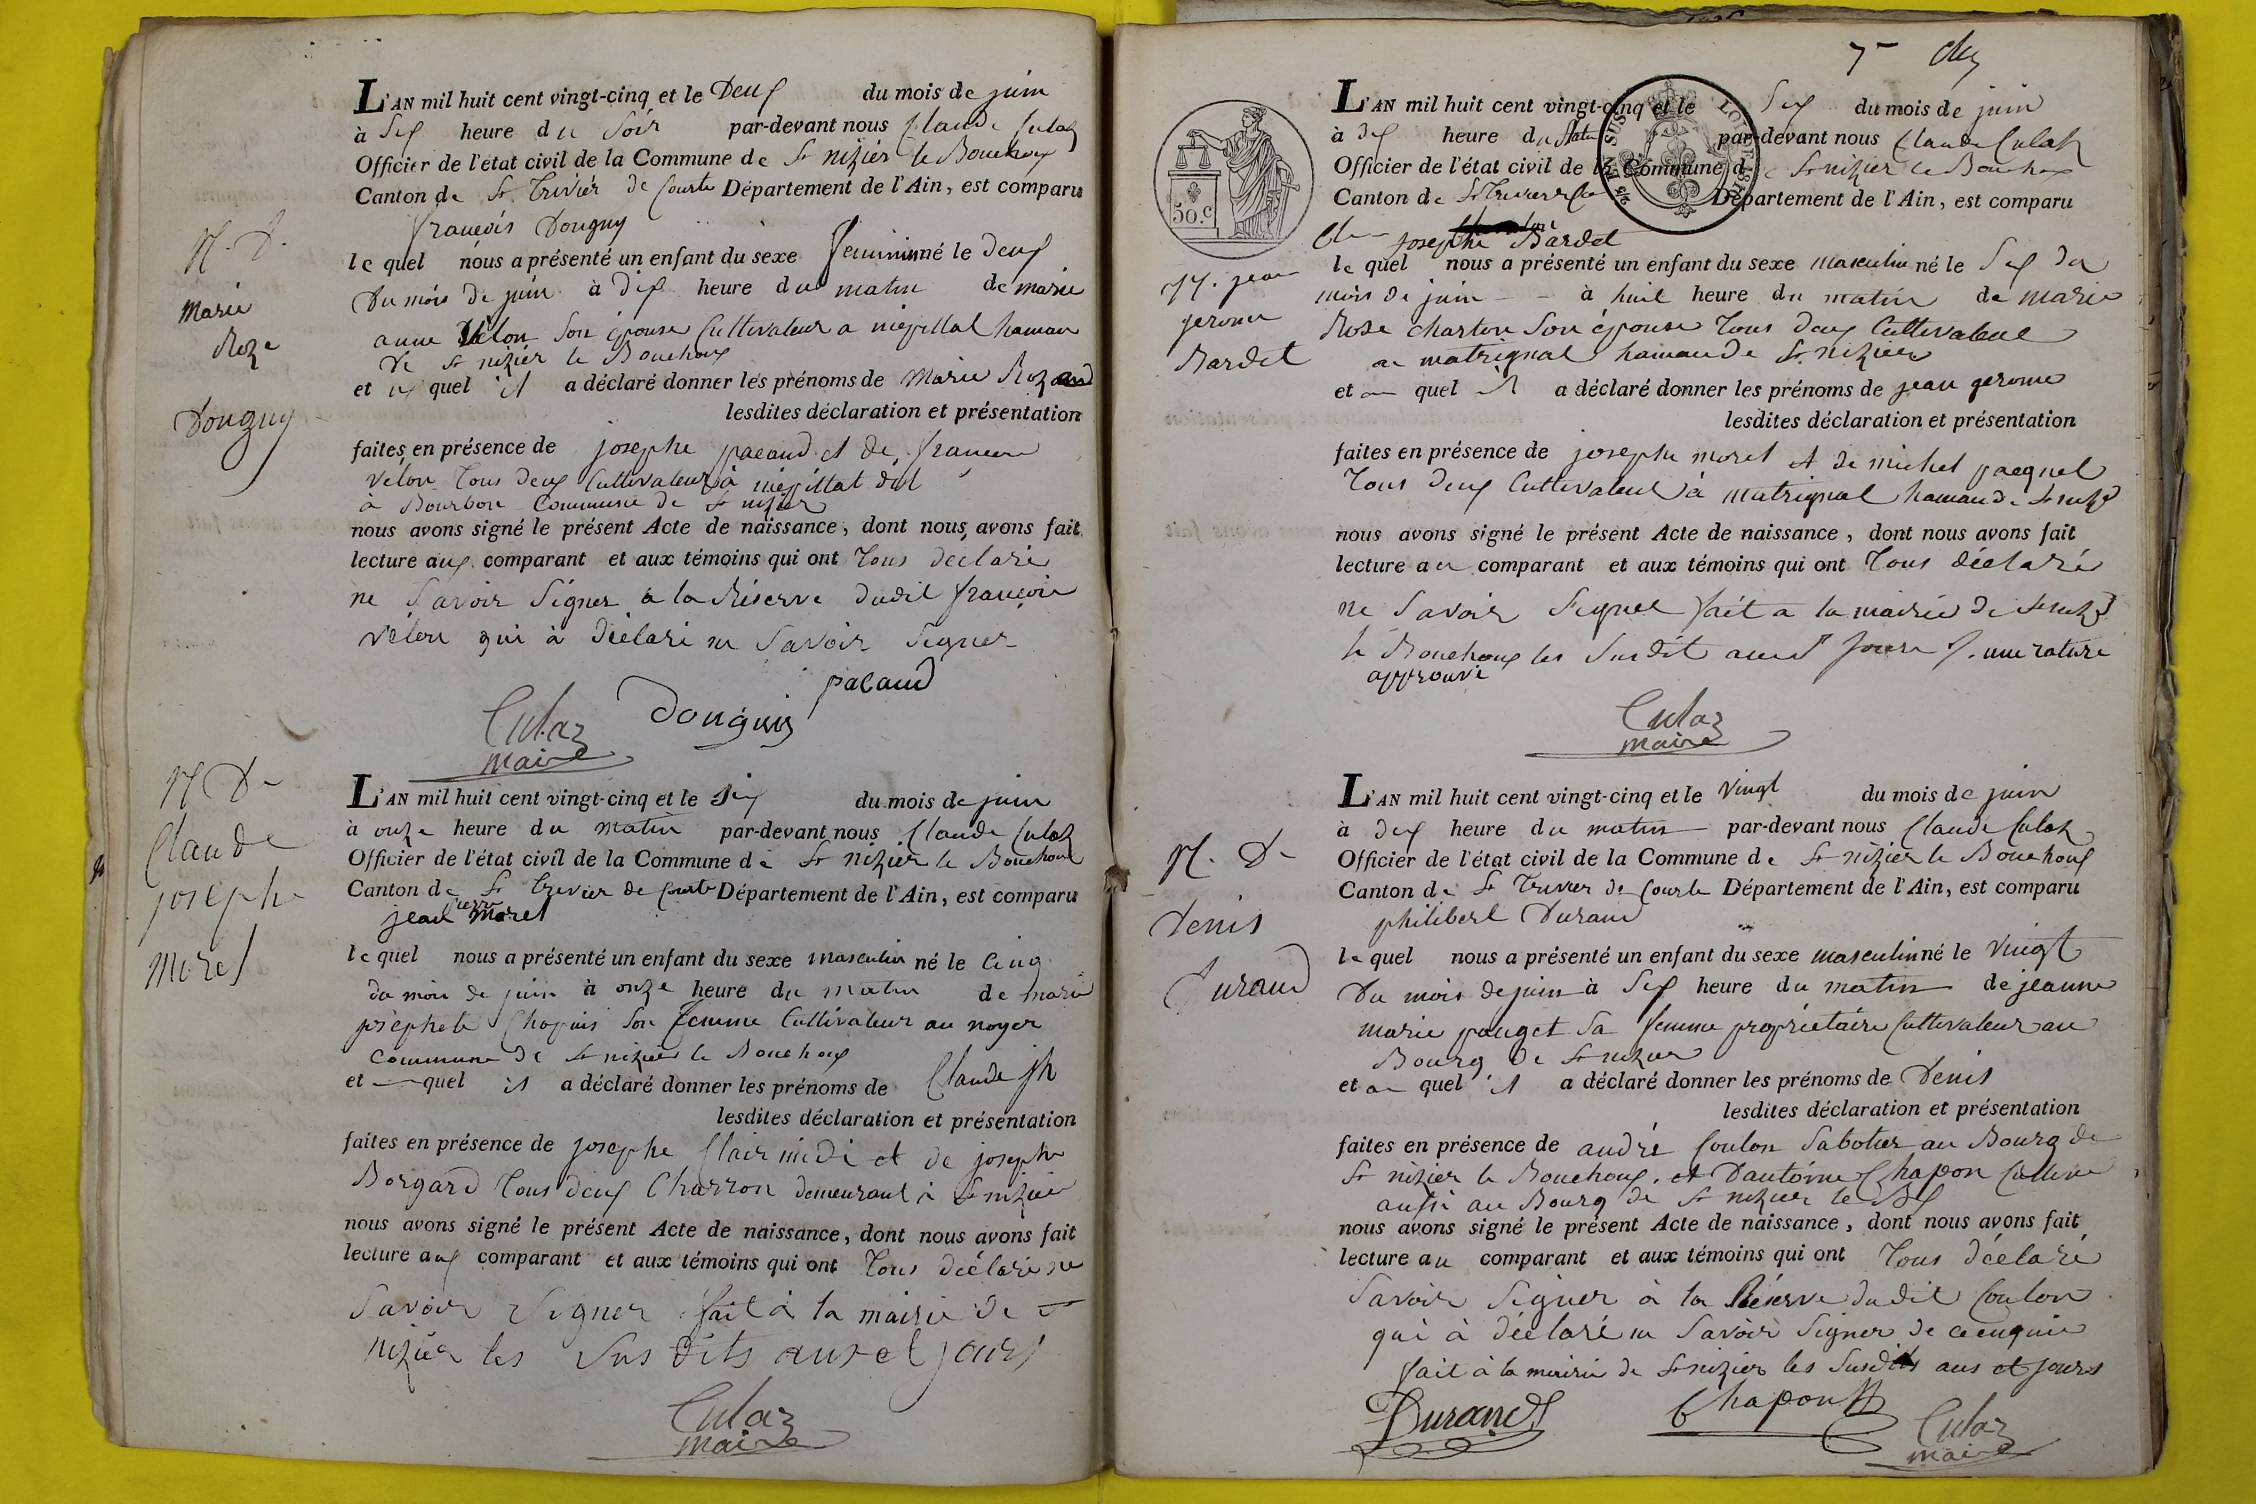 L'AN mil huit cent vingt-cinq et le Deux du mois de juin
à Six heure du Soir par-devant nous Claude Culaz
Officier de l'état civil de la Commune de St nizier le Bouchoux
Canton de St Trivier de Courte Département de l'Ain, est comparu
françois Douguy
le quel nous a présenté un enfant du sexe feminin né le deux
Du mois de juin à dix heure du matin de marie
anne Vélon Son épouse Cultivateur a mépillat hamau
De St nizier le Bouchoux
et quel il a déclaré donner les prénoms de Marie Roz
lesdites déclaration et présentation
faites en présence de josephe pacaud et de francois
Vélon Tous deux Cultivateur à mépillat dit
à Bourbon Commune de St nizier
nous avons signé le présent Acte de naissance, dont nous avons fait
lecture aux comparant et aux témoins qui ont Tous déclaré
ne Savoir Signer à la Réserve dudit françois
Vélon qui à déclaré ne Savoir Signer
pacaud
Culaz Douguis
maire
N. D.
Marie
Roze
Douguy
L'AN mil huit cent vingt-cinq et le Six du mois de juin
à onze heure du matin par-devant nous Claude Culaz
Officier de l'état civil de la Commune de St nizier le Bouchoux
Canton de St Trevier de Courte Département de l'Ain, est comparu
jean pierre Morel
le quel nous a présenté un enfant du sexe masculin né le Cinq
du mois de juin à onze heure du matin de marie
josephete Chapuis Son femme Cultivateur au noyer
Commune de St nizier le Bouchoux
et quel il a déclaré donner les prénoms de Claude jh
lesdites déclaration et présentation
faites en présence de josephe Clair midi et de josephe
Borgard Tous deux Charron demeurant à St nizier
nous avons signé le présent Acte de naissance, dont nous avons fait
lecture aux comparant et aux témoins qui ont Tous déclaré ne
Savoir Signer fait à la mairie de St
nizier les Sus dits ans et jours
Culaz
maire
N D
Claude
josephe
Morel
7
L'AN mil huit cent vingt-cinq et le Six du mois de juin
à dix heure du matin par-devant nous Claude Culaz
Officier de l'état civil de la Commune de St nizier le Bouchoux
Canton de St Trivier de Département de l'Ain, est comparu
josephe Bardet
le quel nous a présenté un enfant du sexe masculin né le Six du
mois de juin à huit heure du matin de marie
Rose charton Son épouse Tous deux Cultivateur
a matrignal hamau de St nizier
et au quel il a déclaré donner les prénoms de jean gerome
lesdites déclaration et présentation
faites en présence de josephe morel et de michel pacquel
Tous deux Cultivateur à matrignal hamau de St nizier
nous avons signé le présent Acte de naissance, dont nous avons fait
lecture au comparant et aux témoins qui ont Tous déclaré
ne Savoir Signer fait a la mairie de St nizier
le Bouchoux les Sus dit ans et jours. une rature
approuvé
Culaz
maire
50.C
N. jean
gerome
Bardet
L'AN mil huit cent vingt-cinq et le vingt du mois de juin
à dix heure du matin par-devant nous Claude Culaz
Officier de l'état civil de la Commune de St nizier le Bouchoux
Canton de St Trivier de Courte Département de l'Ain, est comparu
philibert Durand
le quel nous a présenté un enfant du sexe masculin né le vingt
Du mois de juin à Six heure du matin de jeanne
marie pouget Sa femme propriétaire Cultivateur au
Bourg de St nizier
et au quel il a déclaré donner les prénoms de Denis
lesdites déclaration et présentation
faites en présence de andré Coulon Sabotier au Bourg de
St nizier le Bouchoux. et D'antoine Chapon
aussi au Bourg de St nizier le Bx
nous avons signé le présent Acte de naissance, dont nous avons fait
lecture au comparant et aux témoins qui ont Tous déclaré
Savoir Signer à la Réserve dudit Coulon
qui à déclaré ne Savoir Signer de ce enquis
fait à la mairie de St nizier les Susdits ans et jours
Durand Chapon Culaz
maire
N. D.
Denis
Durand